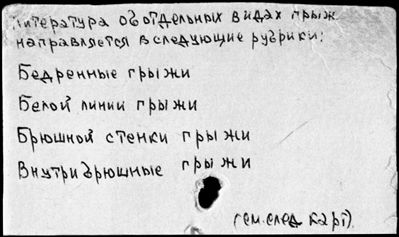 Литература об отдельных видах грыж
направляется в следующие рубрики:
Бедренные грыжи
Белой линии грыжи
Брюшной стенки грыжи
Внутрибрюшные грыжи
(см. след карт).